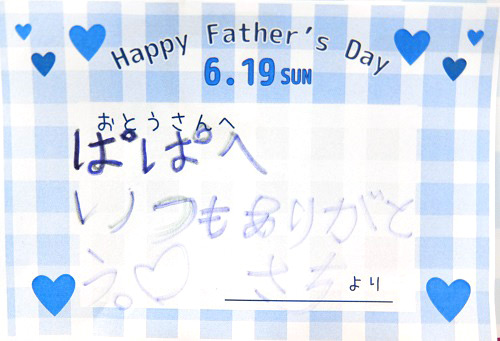 Happy Father's Day
6.19 SUN
おとうさんへ
ぱぱへ
いつもありがと
う。♡ さち より